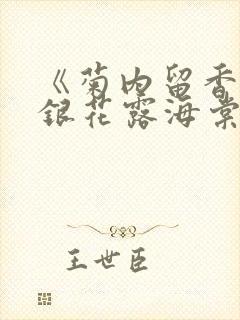 《菊内留香
银花露海棠
王世臣